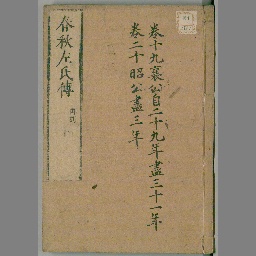 卷十九襄公自二十九年盡三十一年
卷二十昭公盡三年
春秋左氏傳